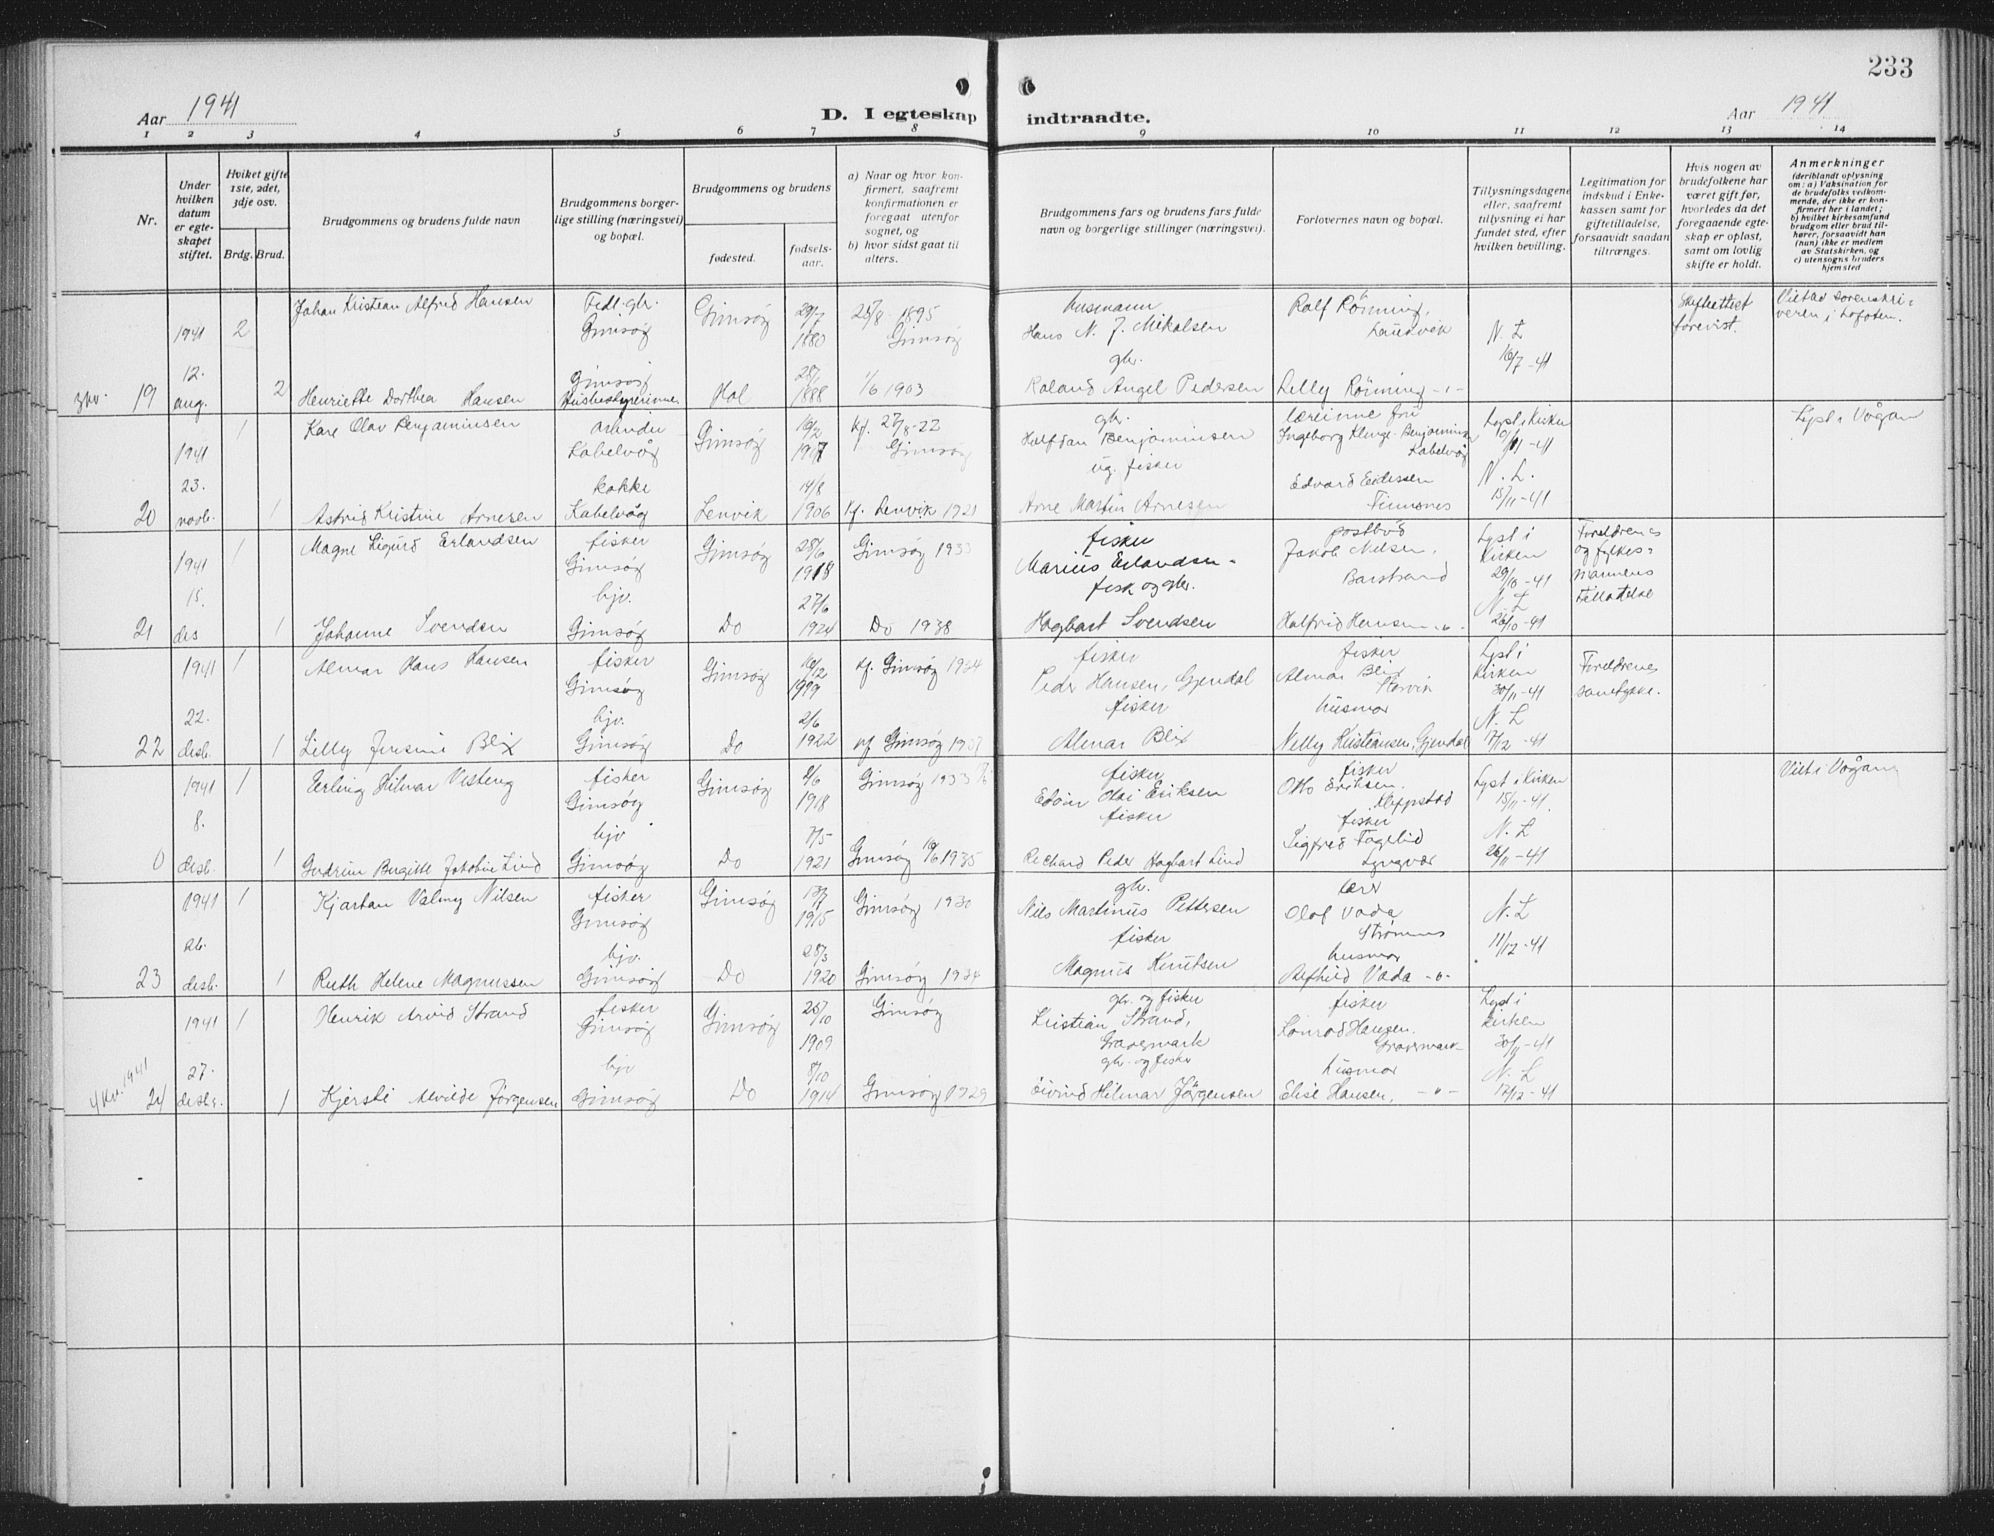 233
Aar 1941
D. I egteskap indtraadte.
Aar 1941
1 2 3 4 5 6 7 8 9 10 11 12 13 14
Nr.
Under hvilken datum er egteskapet stiftet.
Hviket gifte 1ste, 2det, 3dje osv.
Brdg. Brud.
Brudgommens og brudens fulde navn
Brudgommens borgerlige stilling (næringsvei) og bopæl.
Brudgommens og brudens
fødested.
fødselsaar.
a) Naar og hvor konfirmert, saafremt konfirmationen er foregaat utenfor sognet, og
b) hvor sidst gaat til alters.
Brudgommens fars og brudens fars fulde navn og borgerlige stillinger (næringsvei).
Forlovernes navn og bopæl.
Tillysningsdagene eller, saafremt tillysning ei har fundet sted, efter hvilken bevilling.
Legitimation for indskud i Enkekassen samt for giftetilladelse, forsaavidt saadan tiltrænges.
Hvis nogen av brudefolkene har været gift før, hvorledes da det foregaaende egteskap er opløst, samt om lovlig skifte er holdt.
Anmerkninger
(deriblandt oplysning om: a) Vaksination for de brudefolks vedkommende, der ikke er konfirmert her i landet; b) hvilket kirkesamfund brudgom eller brud tilhører, forsaavidt han (hun) ikke er medlem av Statskirken, og c) utensogns bruders hjemsted
1941 2 Johan Kristian Alfred Hansen Gimsøy Gimsøy 29/7 1880 25/8-1895 Gimsøy
husmann Hans N. J. Mikalsen Rolf Rönning, Laukvik N. L 16/7-41 Skifteattest forevist. Viet av sorenskriveren i Lofoten.
19 12. aug. 2 Henriette Dorthea Hansen Gimsøy Husbestyrerinne Hol 1888 1/6 1903
gbr. Roland Angel Pedersen Lelly Rönning
1941 1 Kare Olav Benjaminsen Kabelvåg Gimsøy 16/2 1917 kf. 27/8-22 Gimsøy
gbr. Halfdan Benjaminsen Ingeborg Klinge-Benjaminsen Kabelvåg Lyst i Kirken Lyst i Vågan
20 23. novb. 1 Astrid Kristine Arnesen kokke Kabelvåg Lenvik 14/8 1906 kf. Lenvik 1921
ug. fisker Arne Martin Arnesen Edvard Finnsnes N. L. 15/11-41
1941 1 Magne Sigurd Erlandsen fisker Gimsøy Gimsøy 28/6 1918 Gimsøy 1933
fisker Marius Erlandsen postbud Jakob Nilsen, Barstrand Lyst i Kirken 29/10-41 Foreldrenes og fylkesmannens
21 15. des 1 Johanne Svendsen hjv. Gimsøy Do 27/6 1924 Do 1938
fisk og gbr. Hagbart Svendsen N. L 28/10-41
1941 1 Almar Hans Hansen fisker Gimsøy Gimsøy 16/12 kf. Gimsøy 1934
fisker Peder Hansen, Gjendal fisker Almar Blix Lyst i Kirken 30/11-41 Foreldrenes samtykke.
22 22. desb. 1 Lilly Jensine Blix hjv. Gimsøy Do 2/6 1922 kf Gimsøy 1937
fisker Almar Blix husmor Nelly Kristiansen, Gjendal N. L 17/12-41
1941 1 Erling Hilmar Vesteng fisker Gimsøy Gimsøy 1918 Gimsøy 1933
fisker Edvin Olai Eriksen fisker Otto Eriksen. Kleppstad Lyst i Kirken 15/11-41 Viet i Vågan
0 8. desb. 1 Gudrun Birgitte Jakobine Lind hjv Gimsøy Do 7/5 1921 Gimsøy 16/6 1935
fisker Richard Peder Hagbart Lind fisker Sigfred Fagelid Lyngvær N. L 26/11-41
1941 1 Kjartan Valmy Nilsen fisker Gimsøy Gimsøy 13/7 1915 Gimsøy 1930
gbr. Nils Martinus Pettersen Olaf Vada N. L 11/12-41
23 26. desb. 1 Ruth Helene Magnussen hjv. Gimsøy Do 28/3 1920 Gimsøy 1934
fisker Magnus Knutsen husmor Vada
1941 1 Henrik Arvid Strand fisker Gimsøy Gimsøy 26/10 1909 Gimsøy
gbr. og fisker Kristian Strand, Gravermark fisker Konrad Hansen. Gravermark Lyst i kirken 30/11-41
4 kv. 1941 24 27. desbr. 1 Kjersti Alvilde Jørgensen hjv Gimsøy Do 8/10 1914 Gimsøy 1929
gbr. og fisker Öivind Hilmar Jörgensen husmor Elise Hansen, N. L 12/12-41